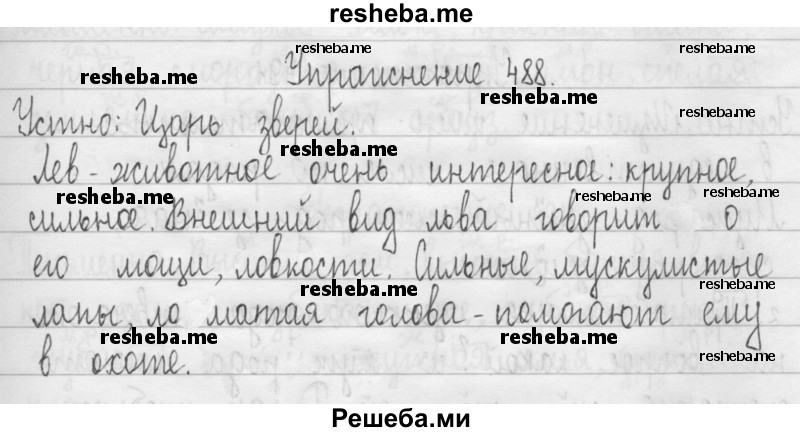 resheba.me
resheba.me resheba.me
Упражнение 488.
resheba.me resheba.me
resheba.me
Устно: Царь зверей.
resheba.me
Лев - животное очень интересное: крупное,
resheba.me resheba.me resheba.me
сильное. Внешний вид льва говорит о
его мощи, ловкости. Сильные, мускулистые
resheba.me resheba.me
лапы, ло матая голова - помогают ему
resheba.me resheba.me resheba.me
в охоте.
Решеба.ми